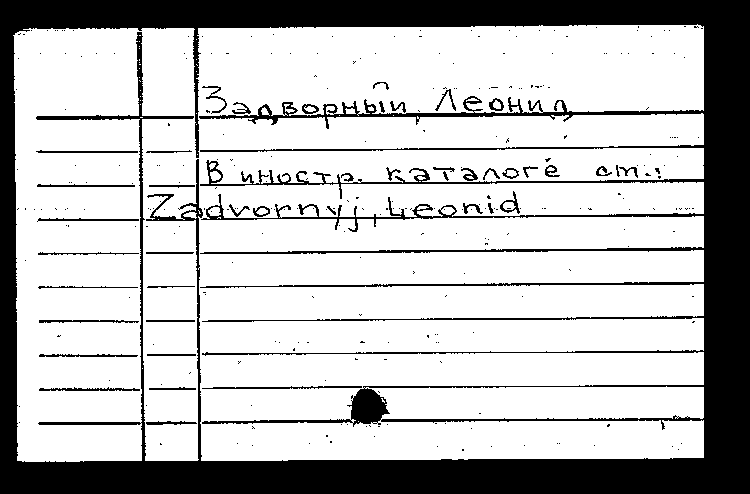 Задворный, Леонид
В иностр. каталоге см.:
Zadvornyj, Leonid